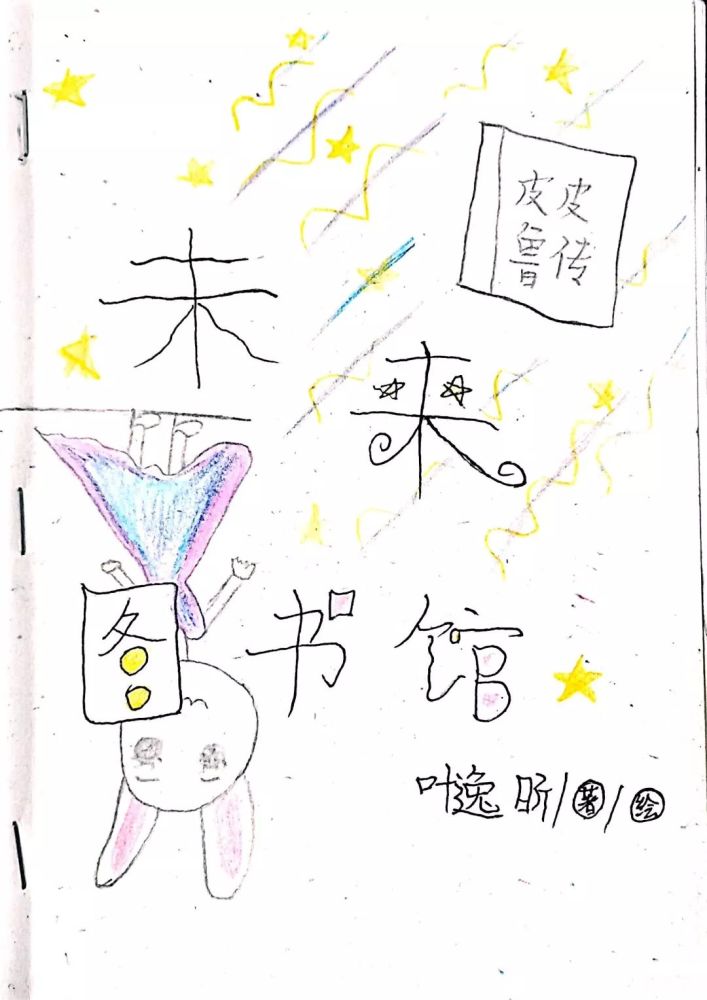 皮皮
鲁传
未来
图书馆
叶逸昕/著/绘